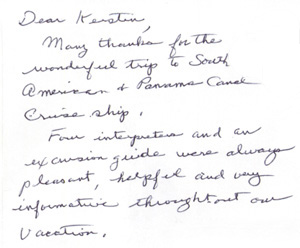 Dear Kerstin,
Many thanks for the
wonderful trip to South
American & Panama Canal
Cruise ship.
Four interpreters and an
excursion guide were always
pleasant, helpful and very
informative throughout our
vacation.